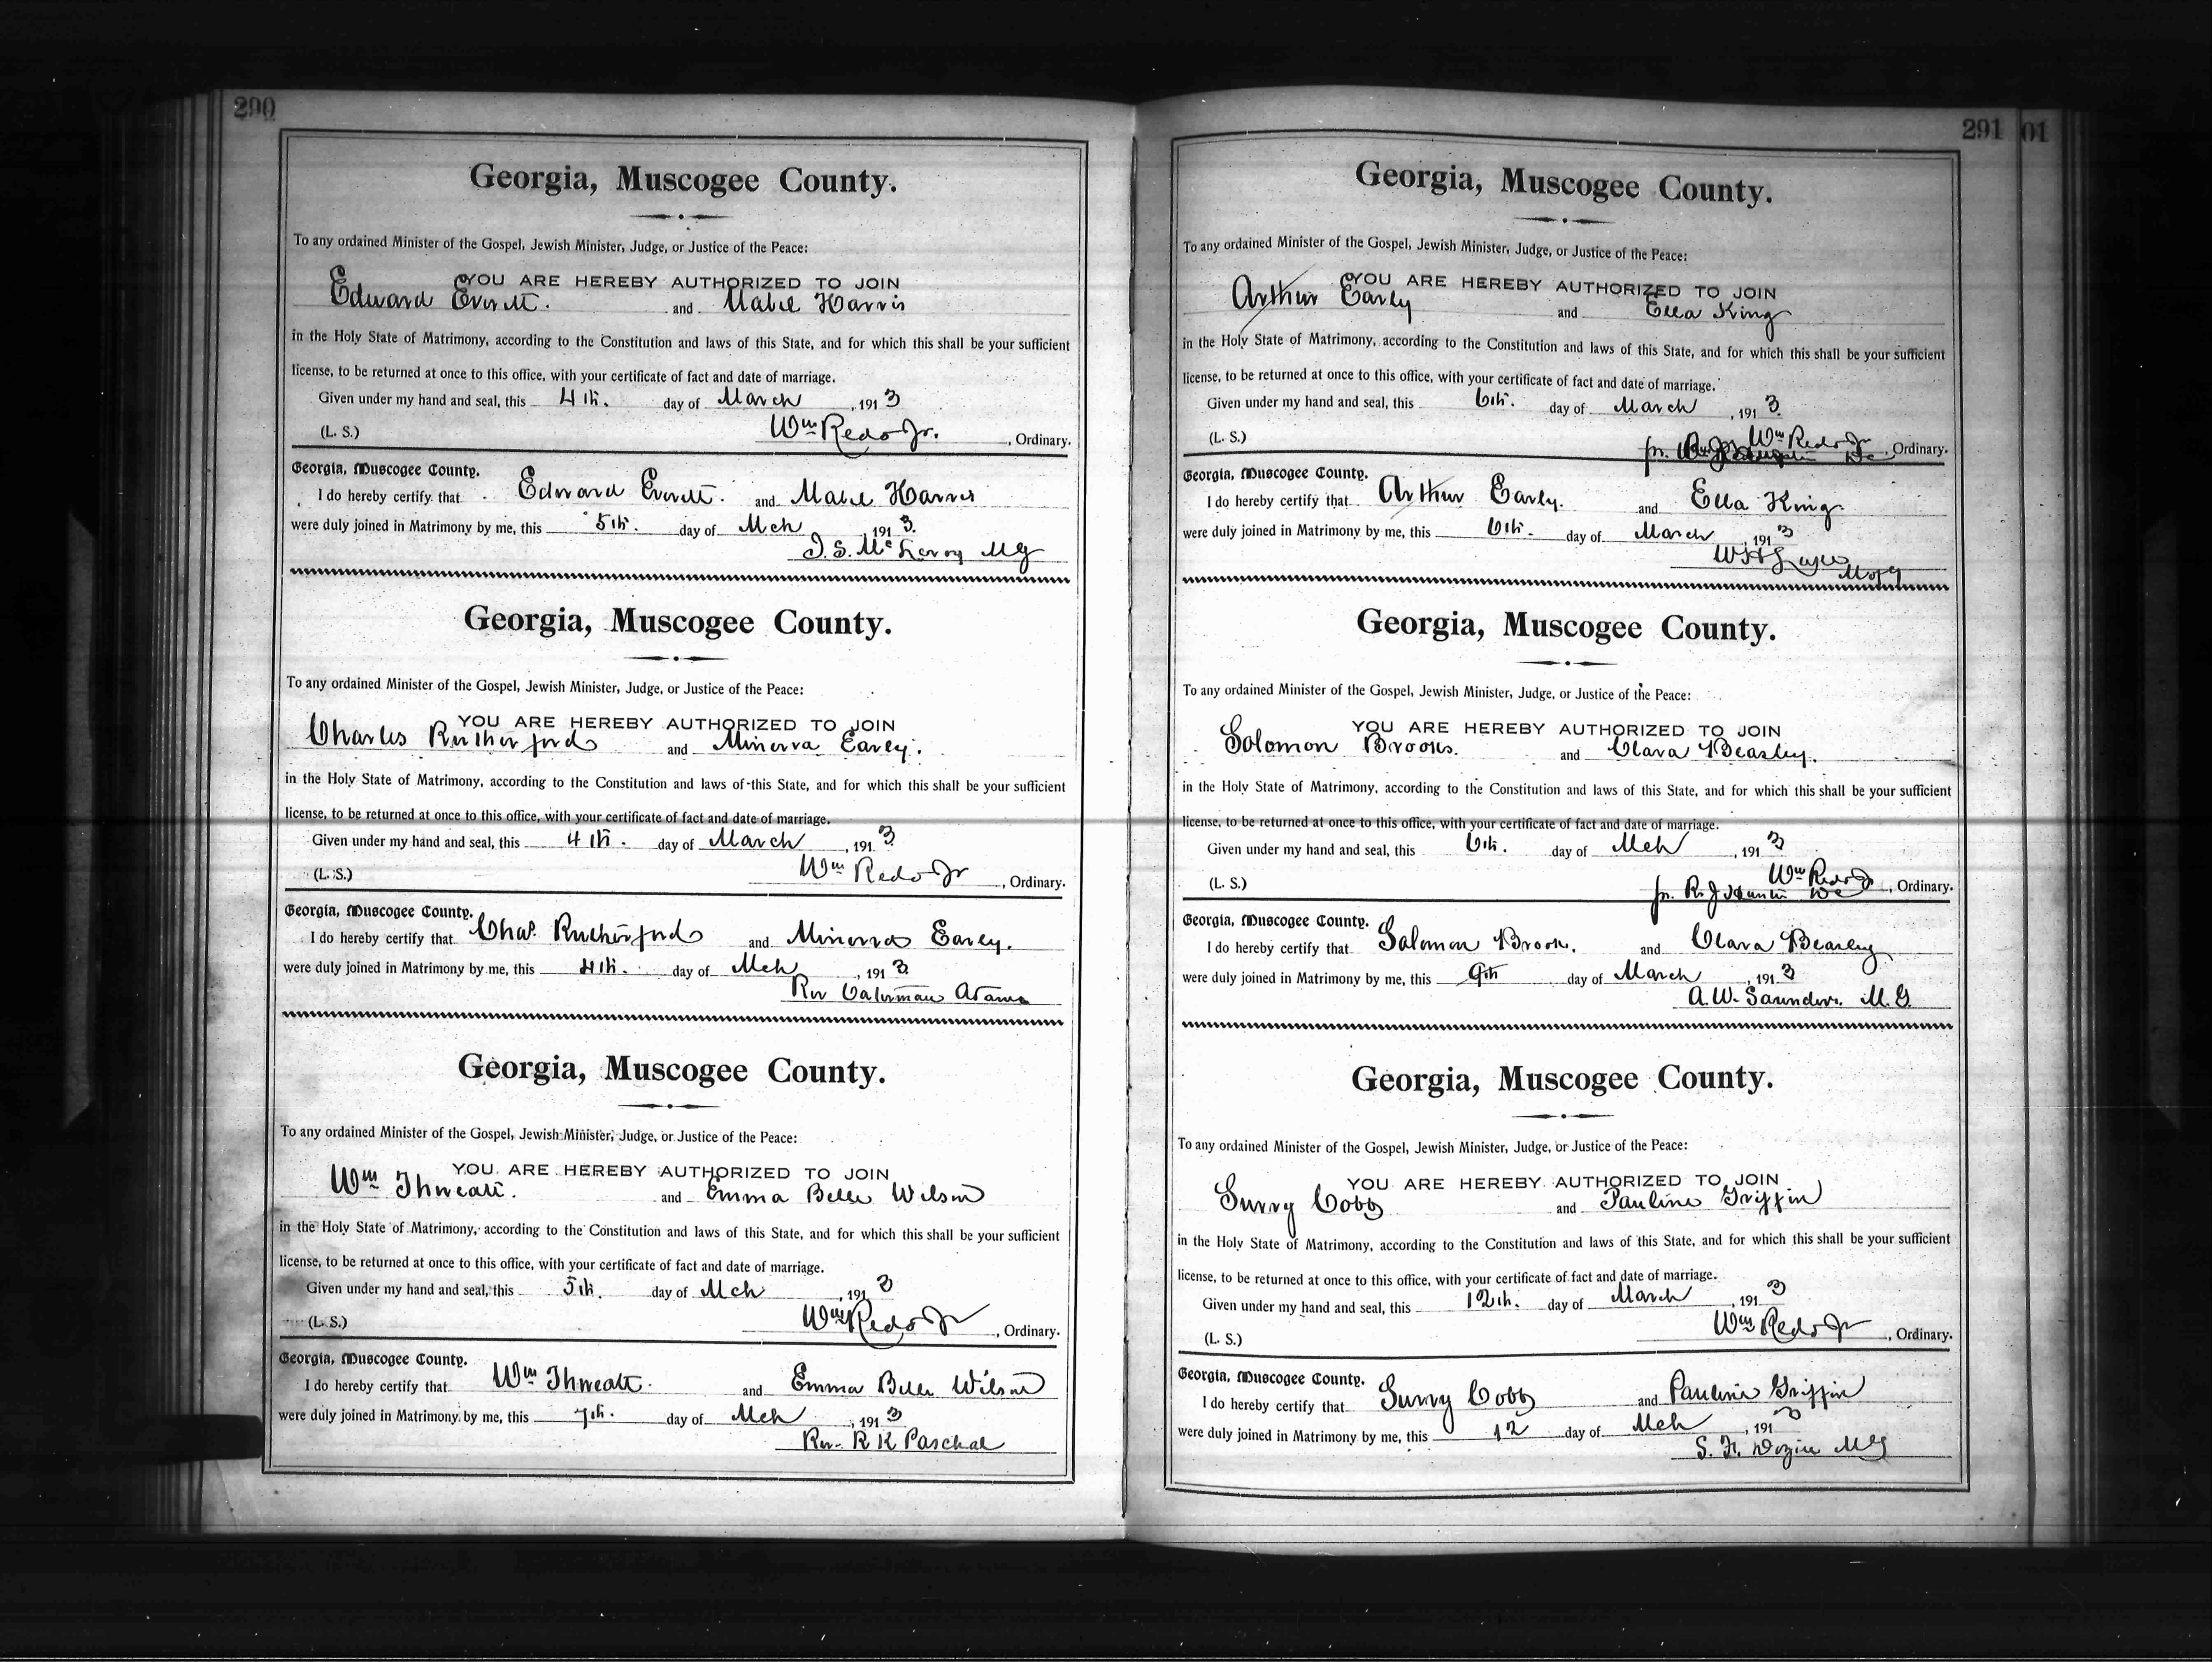 290
Georgia, Muscogee County.
To any ordained Minister of the Gospel, Jewish Minister, Judge, or Justice of the Peace:
YOU ARE HEREBY AUTHORIZED TO JOIN
Edward Everett. and Mabel Harris
in the Holy State of Matrimony, according to the Constitution and laws of this State, and for which this shall be your sufficient
license, to be returned at once to this office, with your certificate of fact and date of marriage.
Given under my hand and seal, this 4th. day of March, 1913
(L. S.) Wm Redd Jr., Ordinary.
Georgia, Muscogee County.
I do hereby certify that Edward Everett. and Mabel Harris
were duly joined in Matrimony by me, this 5th. day of Mch, 1913.
MG
Georgia, Muscogee County.
To any ordained Minister of the Gospel, Jewish Minister, Judge, or Justice of the Peace:
YOU ARE HEREBY AUTHORIZED TO JOIN
Charles Rutherford and Minerva Earley.
in the Holy State of Matrimony, according to the Constitution and laws of this State, and for which this shall be your sufficient
license, to be returned at once to this office, with your certificate of fact and date of marriage.
Given under my hand and seal, this 4th. day of March, 1913
(L. S.) Wm Redd Jr, Ordinary.
Georgia, Muscogee County.
I do hereby certify that Chas. Rutherford and Minerva Earley.
were duly joined in Matrimony by me, this 4th. day of Mch, 1913
Rev Adams
Georgia, Muscogee County.
To any ordained Minister of the Gospel, Jewish Minister, Judge, or Justice of the Peace:
YOU ARE HEREBY AUTHORIZED TO JOIN
Wm Thweatt. and Emma Belle Wilson
in the Holy State of Matrimony, according to the Constitution and laws of this State, and for which this shall be your sufficient
license, to be returned at once to this office, with your certificate of fact and date of marriage.
Given under my hand and seal, this 5th. day of Mch, 1913
(L. S.) Wm Redd Jr, Ordinary.
Georgia, Muscogee County.
I do hereby certify that Wm Thweatt. and Emma Belle Wilson
were duly joined in Matrimony by me, this 7th. day of Mch, 1913
Rev. R K Paschal
291 01
Georgia, Muscogee County.
To any ordained Minister of the Gospel, Jewish Minister, Judge, or Justice of the Peace:
YOU ARE HEREBY AUTHORIZED TO JOIN
Arthur Early and Ella King
in the Holy State of Matrimony, according to the Constitution and laws of this State, and for which this shall be your sufficient
license, to be returned at once to this office, with your certificate of fact and date of marriage.
Given under my hand and seal, this 6th. day of March, 1913.
Wm Redd Jr
(L. S.) , Ordinary.
Georgia, Muscogee County.
I do hereby certify that Arthur Early. and Ella King
were duly joined in Matrimony by me, this 6th. day of March, 1913
Georgia, Muscogee County.
To any ordained Minister of the Gospel, Jewish Minister, Judge, or Justice of the Peace:
YOU ARE HEREBY AUTHORIZED TO JOIN
Solomon Brooks. and Clara Beasley.
in the Holy State of Matrimony, according to the Constitution and laws of this State, and for which this shall be your sufficient
license, to be returned at once to this office, with your certificate of fact and date of marriage.
Given under my hand and seal, this 6th. day of Mch, 1913
Wm Redd Jr
(L. S.) R. J. , Ordinary.
Georgia, Muscogee County.
I do hereby certify that Solomon Brooks. and Clara Beasley
were duly joined in Matrimony by me, this 9th day of March, 1913
A. W. Saunders. M. G.
Georgia, Muscogee County.
To any ordained Minister of the Gospel, Jewish Minister, Judge, or Justice of the Peace:
YOU ARE HEREBY AUTHORIZED TO JOIN
Surry Cobb and Pauline Griffin
in the Holy State of Matrimony, according to the Constitution and laws of this State, and for which this shall be your sufficient
license, to be returned at once to this office, with your certificate of fact and date of marriage.
Given under my hand and seal, this 12th. day of March, 1913
(L. S.) Wm Redd Jr, Ordinary.
Georgia, Muscogee County.
I do hereby certify that Surry Cobb and Pauline Griffin
were duly joined in Matrimony by me, this 12 day of Mch, 1913
Dozier MG